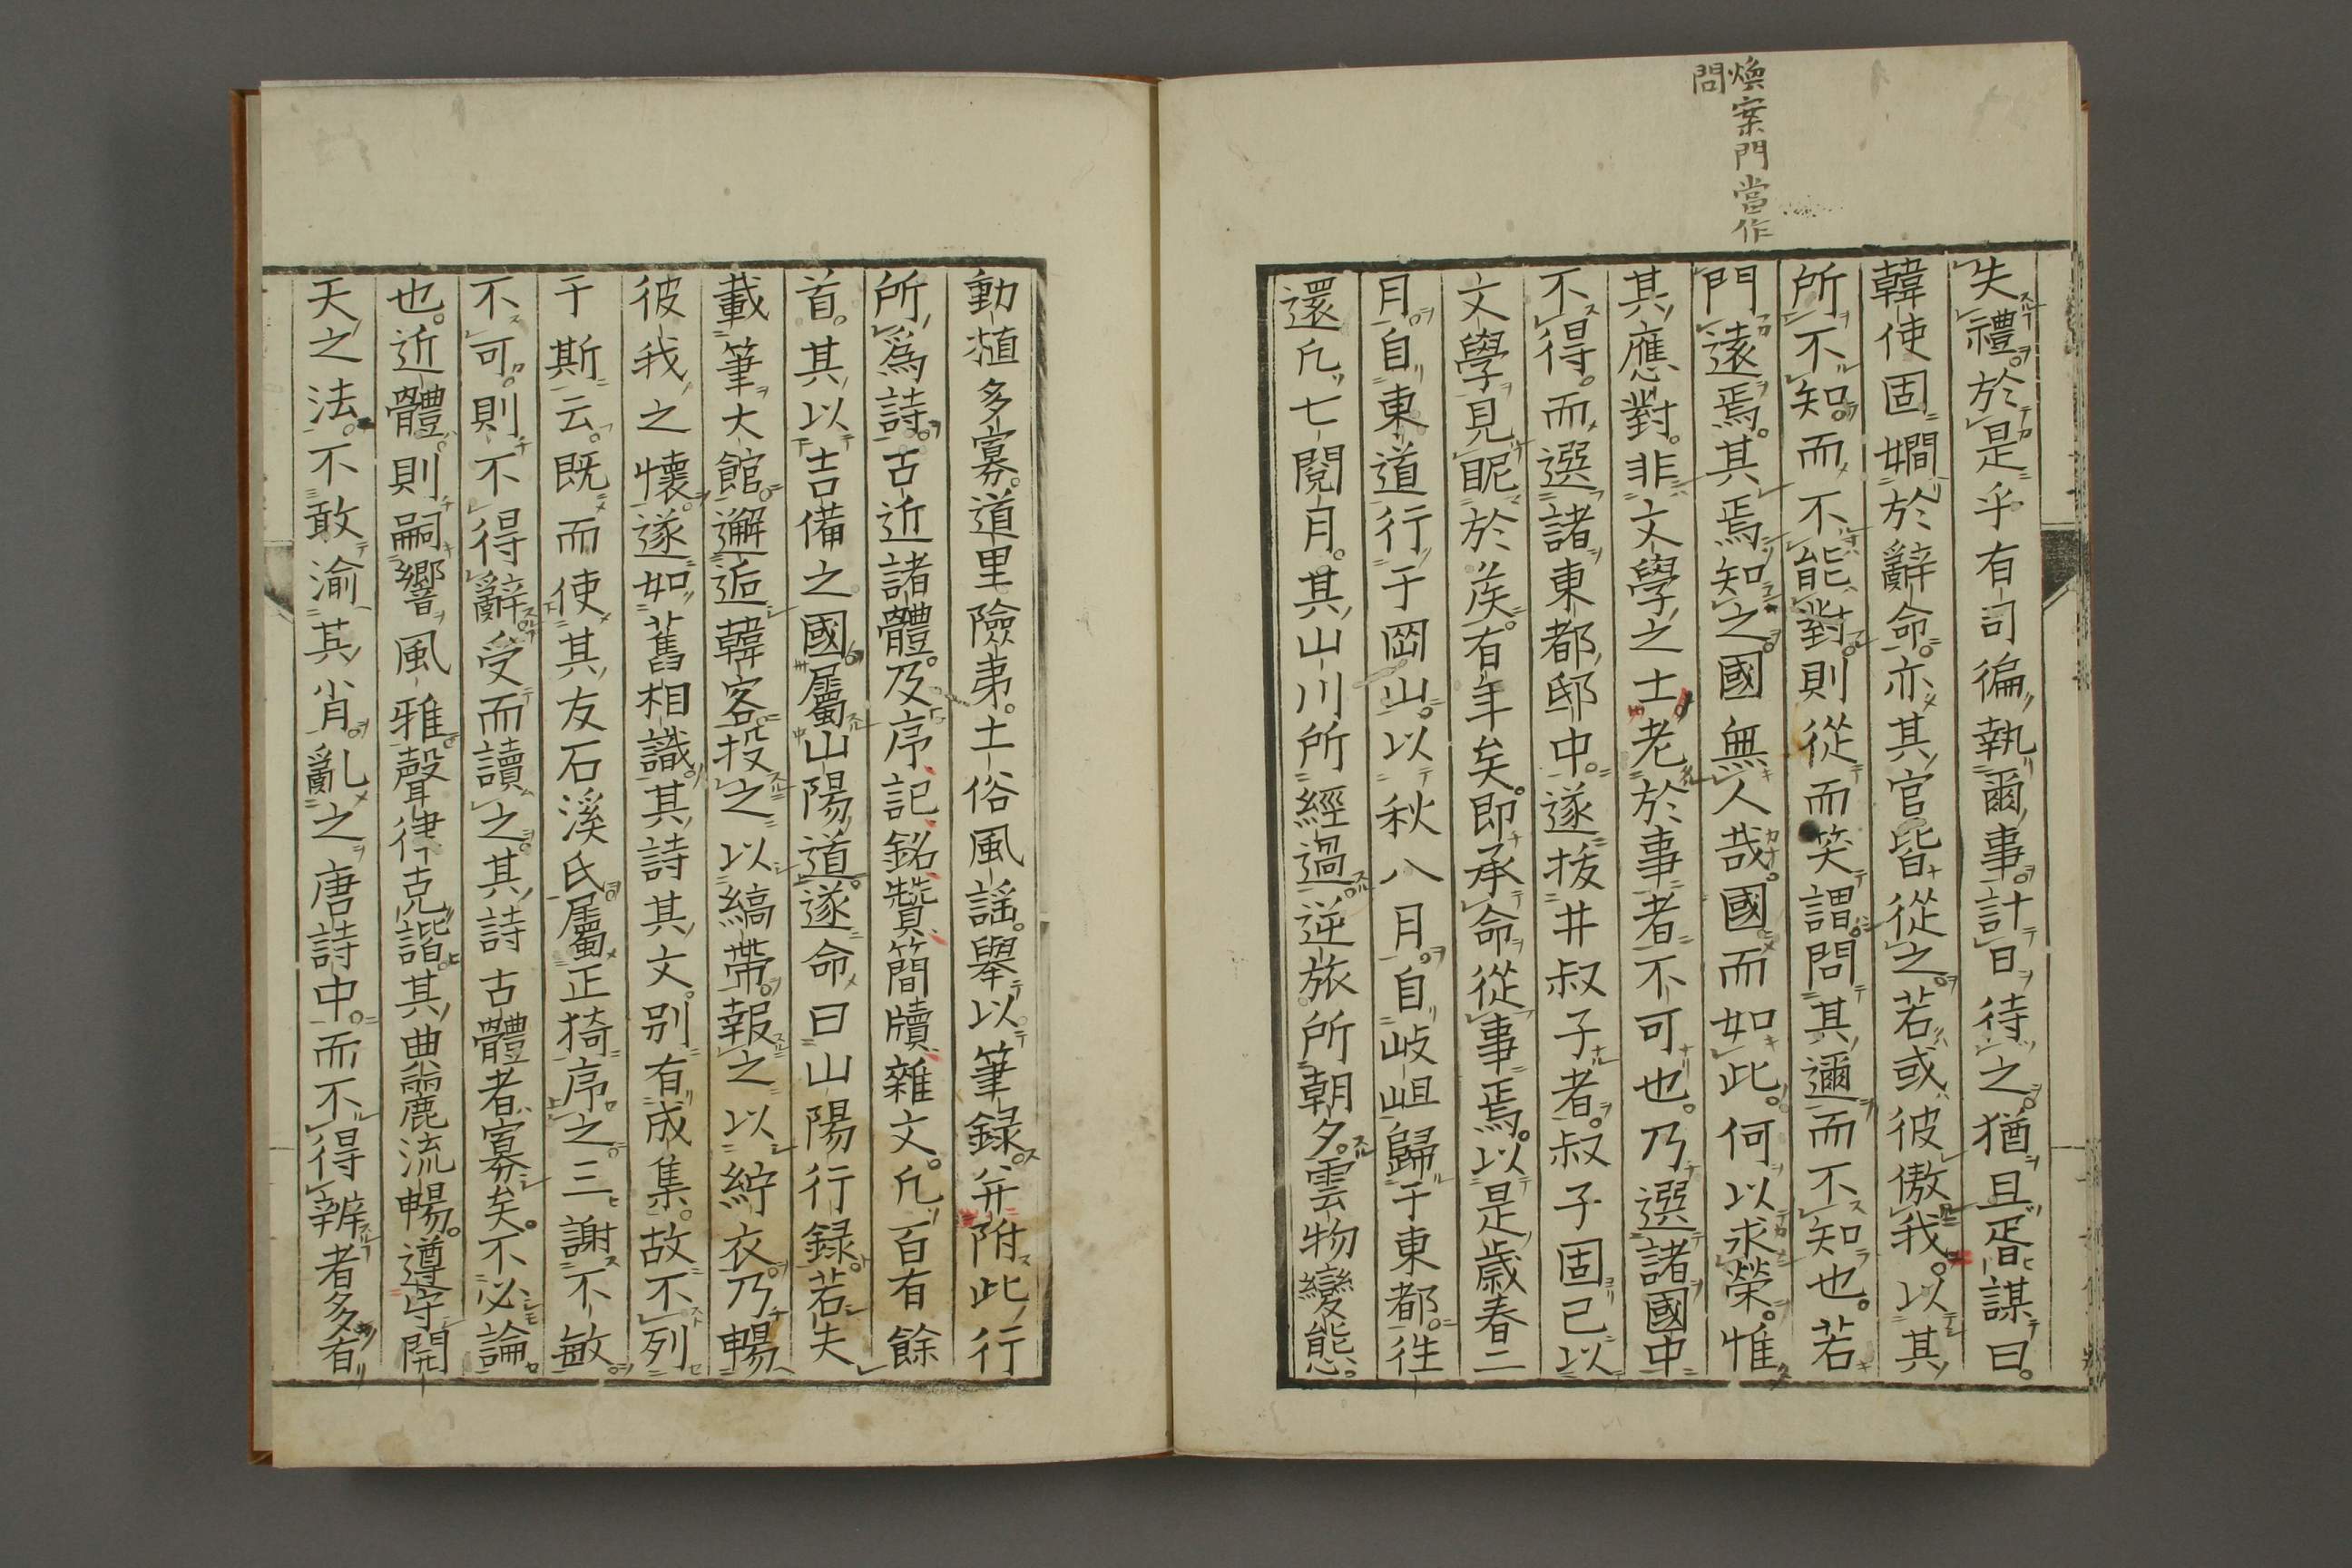 煥案門當作
問
失禮於是乎有司徧執爾事計日待之猶且胥謀曰
韓使固嫺於辭命亦其官皆從之若或彼傲我以其
所不知而不能對則從而笑謂問其邇而不知也若
門遠焉其焉知之國無人哉國而如此何以求榮惟
其應對非文學之士老於事者不可也乃選諸國中
不得而選諸東都邸中遂拔井叔子者叔子固已以
文學見昵於矦有年矣即承命從事焉以是歲春二
月自東道行于岡山以秋八月自岐岨歸于東都徃
還凡七閱月其山川所經過逆旅所朝夕雲物變態
動植多寡道里險夷土俗風謠舉以筆録并附此行
所爲詩古近諸體及序記銘贊簡牘雜文凡百有餘
首其以吉備之國屬山陽道遂命曰山陽行録若夫
載筆大館邂逅韓客投之以縞帶報之以紵衣乃暢
彼我之懷遂如舊相識其詩其文別有成集故不列
于斯云既而使其友石溪氏屬正猗序之三謝不敏
不可則不得辭受而讀之其詩古體者寡矣不必論
也近體則嗣響風雅聲律克諧其典麗流暢遵守開
天之法不敢渝其肖亂之唐詩中而不得辨者多有